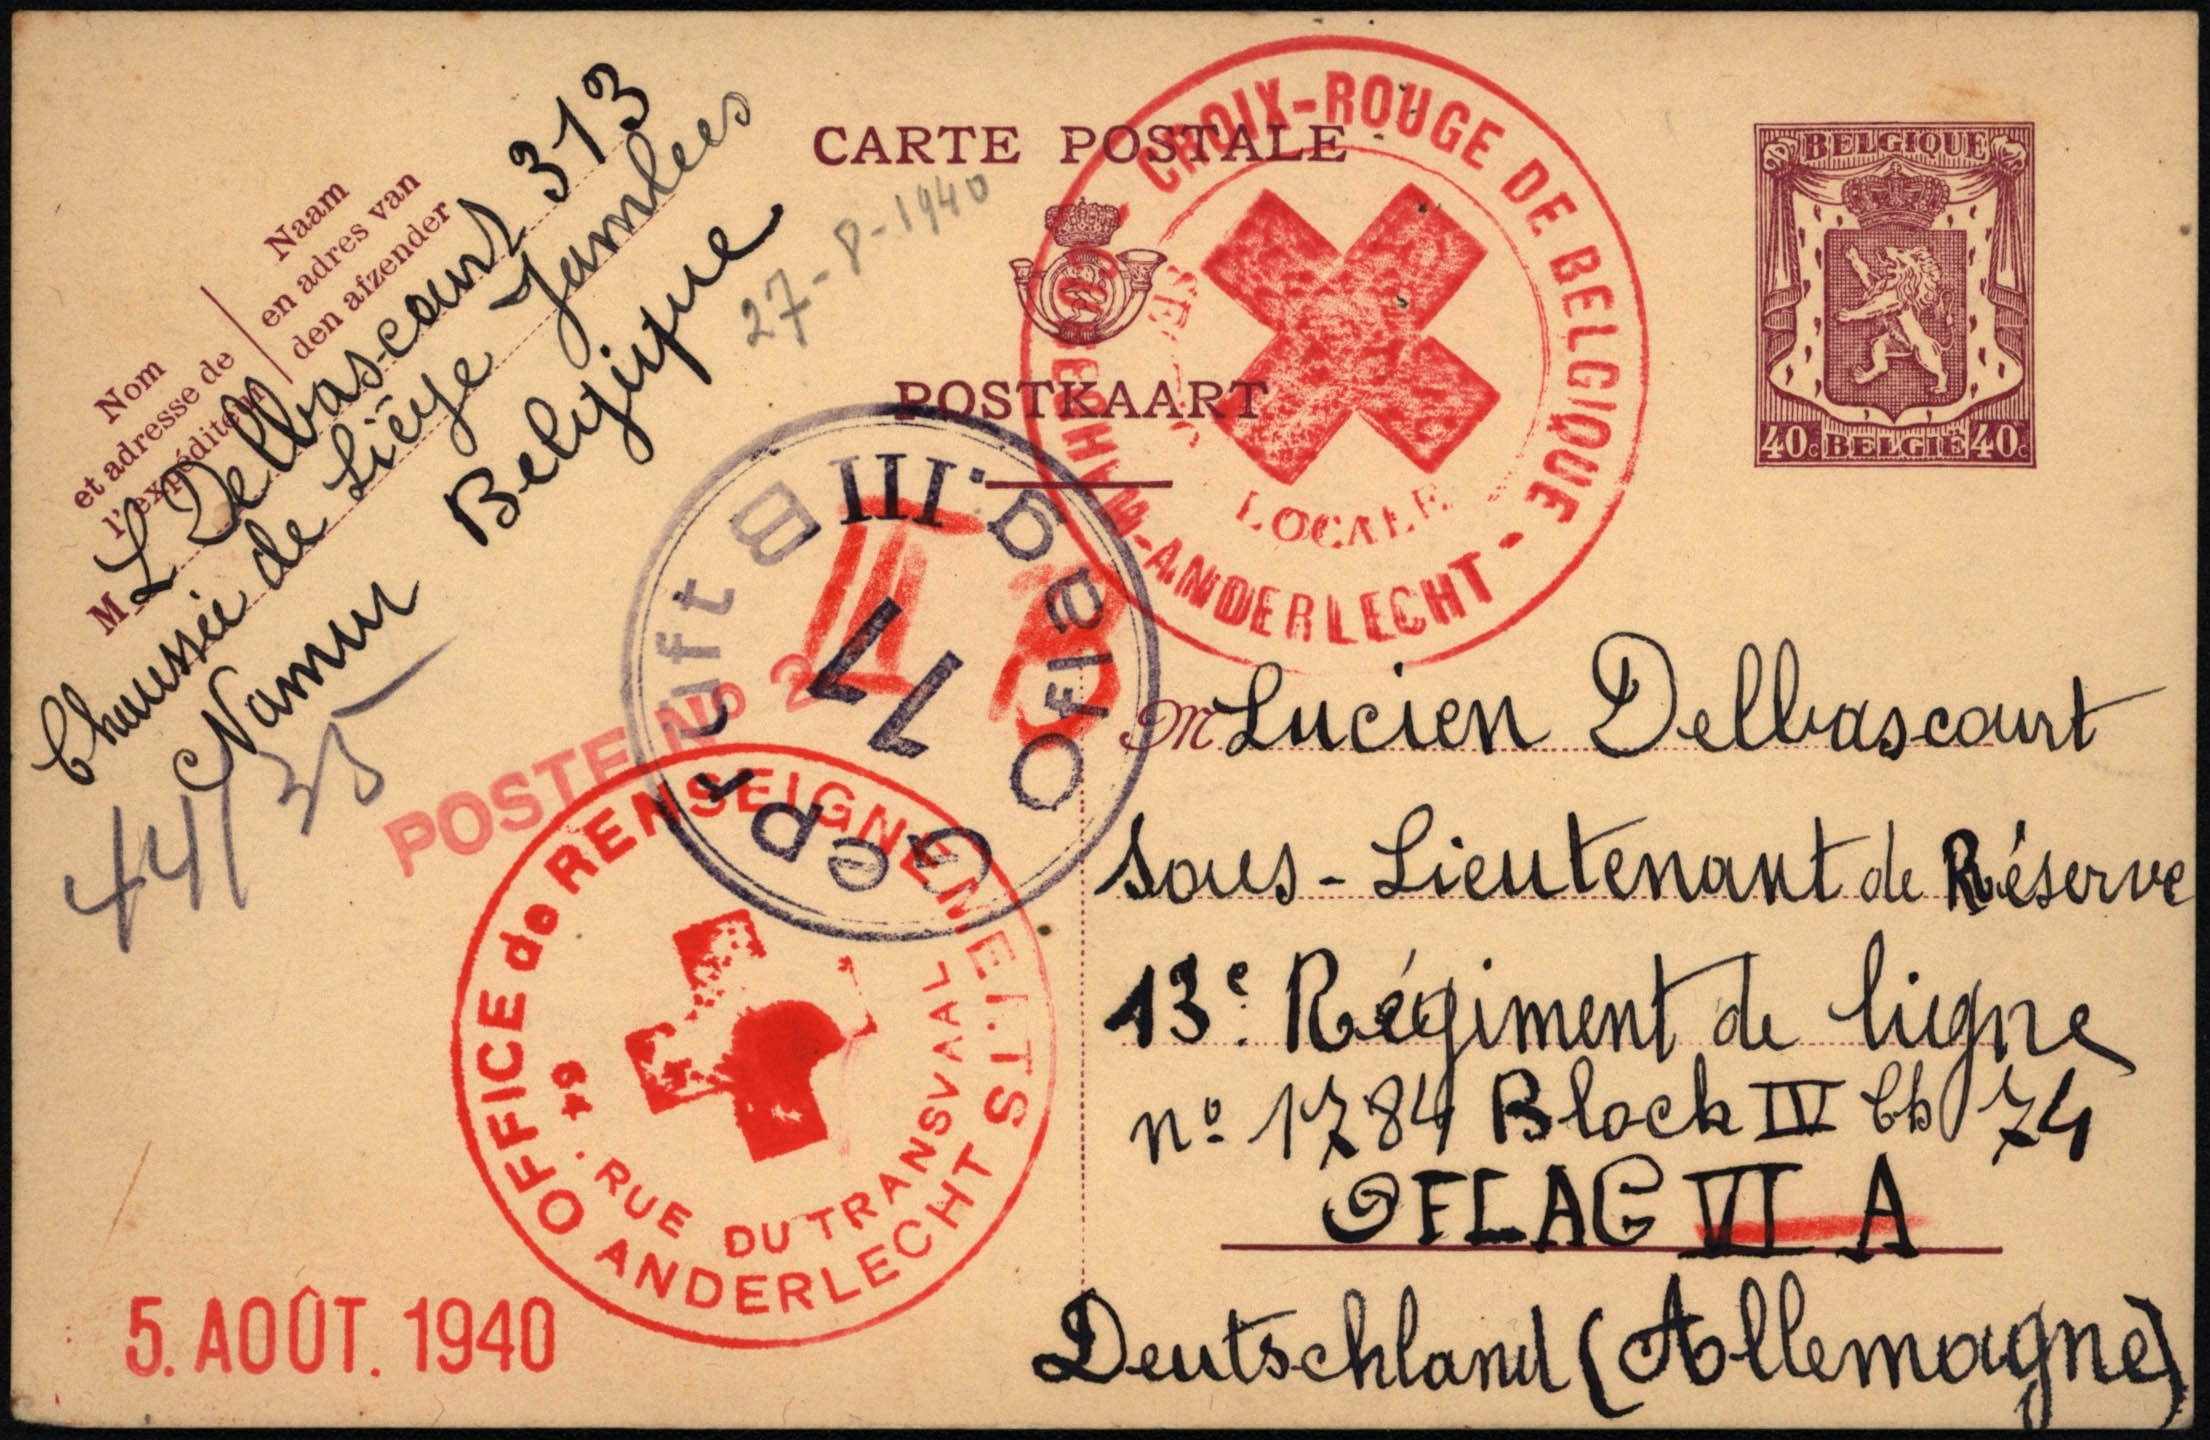 CARTE POSTALE
POSTKAART
BELGIQUE
40c BELGIË 40c
Naam
en adres van
den afzender
Nom
et adresse de
l'expéditeur
M L Delbascourt 313
Chaussée de Liège Jambes
Namur Belgique
27-8-1940
44/35
CROIX-ROUGE DE BELGIQUE
ANDERLECHT
LOCALE
Oflag.III B
17
Geprüft
POSTE No 2
OFFICE de RENSEIGNEMENTS
RUE DU TRANSVAAL
ANDERLECHT
5. AOÛT. 1940
M Lucien Delbascourt
Sous-Lieutenant de Réserve
13e Régiment de ligne
no 1784 Block IV Ch 74
OFLAG VI A
Deutschland (Allemagne)